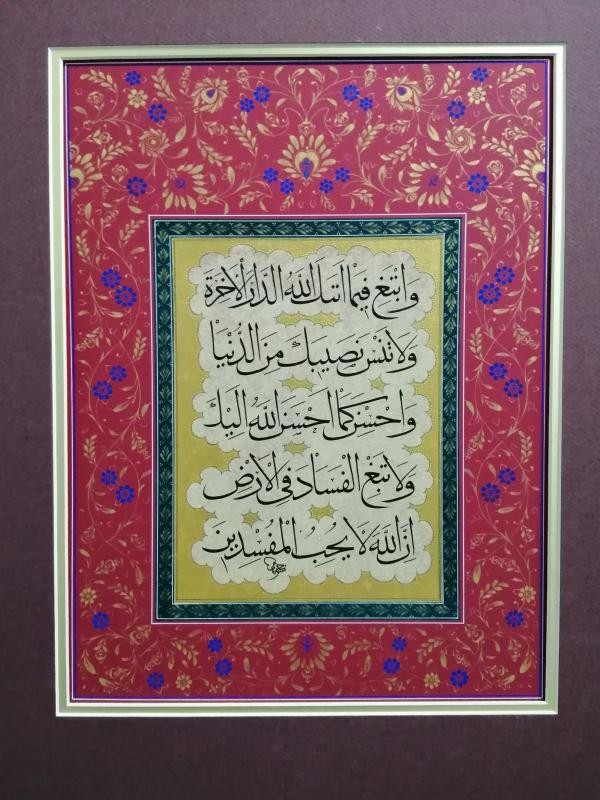 وَابْتَغِ فِيمَا اٰتٰيكَ اللّٰهُ الدَّارَ الْاٰخِرَةَ
وَلَا تَنْسَ نَصِيبَكَ مِنَ الدُّنْيَا
وَاَحْسِنْ كَمَا اَحْسَنَ اللّٰهُ اِلَيْكَ
وَلَا تَبْغِ الْفَسَادَ فِى الْاَرْضِ
اِنَّ اللّٰهَ لَا يُحِبُّ الْمُفْسِدِينَ